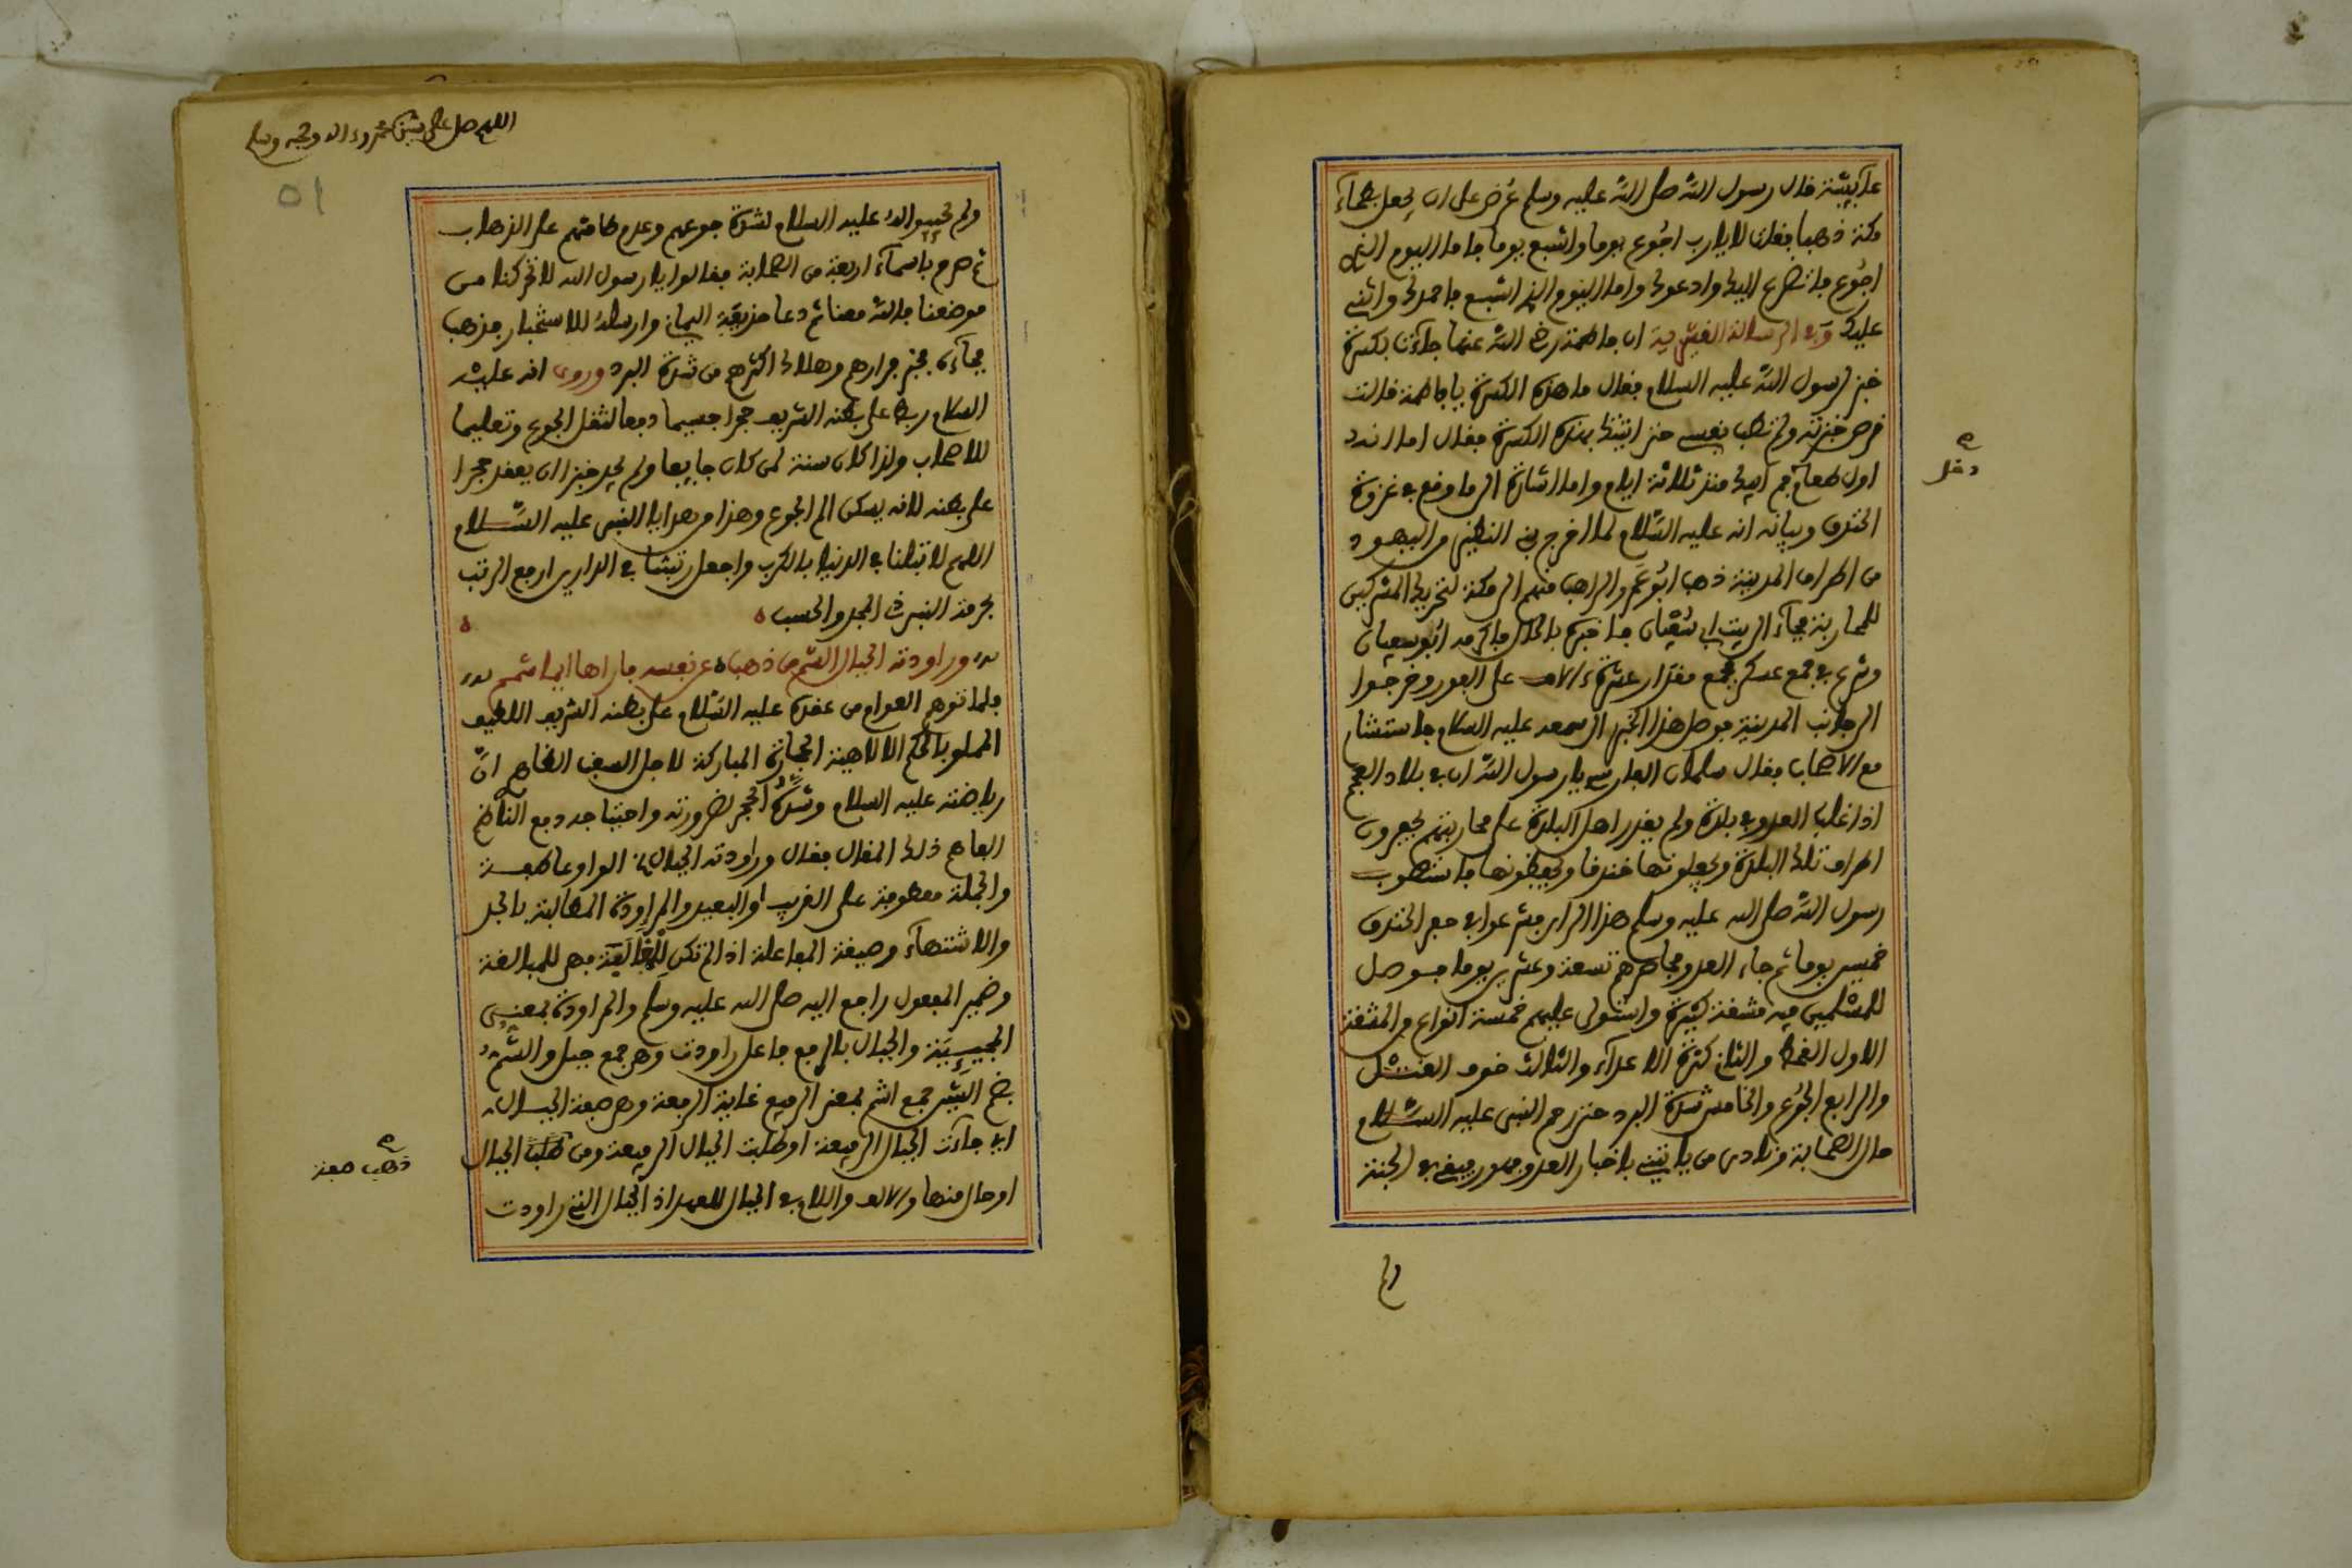 عآئشة قال رسول الله صلى الله عليه وسلم عُرض على ان يجعل بطحآء
مكة ذهبا فقلت لا يارب اجُوع يوما واشبع يوما فاما اليوم الذى
اجُوع فاتضرع اليك وادعوك واما اليوم الذى اشبع فاحمدك واثنى
عليك وفى الرسالة القشيرية ان فاطمة رضى الله عنها جاءت بكسرة
خبز لرسول الله عليه السلام فقال ما هذه الكسرة يا فاطمة قالت
قرص خبزته ولم تطب نفسى حتى اتيتك بهذه الكسرة فقال اما انه
اول طعام دخل فم ابيك منذ ثلاثة ايام واما اشارة الى ما وقع فى غزوة
الخندق وبيانه انه عليه السلام لما اخرج بنى النضير من اليهود
من اطراف المدينة ذهب ابُو عَمرو الراهب منهم الى مكة لتحريك المشركين
للمحاربة فجآء الى بيت ابى سُفيان فاخبره بالحال فاكرمه ابُو سفيان
وشرع فى جمع عسكر فجمع مقدار عشرة ءالاف على الفور وخرجوا
الى جانب المدينة فوصل هذا الخبر الى سمعه عليه السلام فاستشار
مع الاصحاب فقال سلمان الفارسى يا رسول الله ان فى بلاد العجم
اذا غلب العدو فى بلدة ولم يقدر اهل البلدة على محاربتهم يحفرون
اطراف تلك البلدة ويجعلونها خندقا ويحفظونها فاستصوب
رسول الله صلى الله عليه وسلم هذا الراى فشرعوا فى حفر الخندق
خمسين يوما ثم جاء العدو فحاصرهم تسعة وعشرين يوما فوصل
للمسلمين فيه مشقة كثيرة واستولى عليهم خمسة انواع من المشقة
الاول القحط والثانى كثرة الاعداء والثالث خوف القتل
والرابع الجُوع والخامس شدة البرد حتى رحم النبى عليه السلام
حال الصحابة ونادى من ياتينى باخبار العدو فهو رفيقى فى الجنة
ولم
اللهم صل على سيدنا محمد وءاله وصحبه وسلم
٥١
ولم يجيبوا له عليه السلام لشدة جوعهم وعدم طاقتهم على الذهاب
ثم صرح باسمآء اربعة من الصحابة فقالوا يا رسول الله لا تحركنا من
موضعنا فالله معنا ثم دعا حذيفة اليمانى وارسله للاستخبار فذهب
فجآءه بخبر فرارهم وهلاك اكثرهم من شدة البرد وروى انه عليه
السلام ربط على بطنه الشريف حجرا جسيما دفعا لثقل الجوع وتعليما
للاصحاب ولذا كان سنة لمن كان جايعا ولم يجد خبزا ان يعقد حجرا
على بطنه لانه يسكن الم الجوع وهذا من هدايا النبى عليه السلام
اللهم لا تبتلنا فى الدنيا بالكرب واجعل رتبتنا فى الدارين ارفع الرتب
بحرمة النبى ذى المجد والحسب
وراودته الجبال الشم من ذهب ه عن نفسه فاراها ايما شمم
فلما توهم العوام من عقده عليه السلام على بطنه الشريف اللطيف
المملو بالحكم الالاهية الحجارة المباركة لاجل السغب الظاهر انّ
رياضته عليه السلام وشدّه الحجر لضرورته واحتياجه دفع الناظم
الفاهم ذلك المقال فقال وراودته الجبال الواو عاطفة
والجملة معطوفة على القريب او البعيد والمراودة المطالبة بالجد
والاشتهآء وصيغة المفاعلة اذا لم تكن للمغالبة فهى للمبالغة
وضمير المفعول راجع اليه صلى الله عليه وسلم والمراودة بمعنى
المجيىية والجبال بالرفع فاعل راودت وهو جمع جبل والشم
بضم الشين جمع اشم بمعنى الرفيع غاية الرفعة وهو صفة الجبال
اى جآءت الجبال الرفيعة او طلبت الجبال الرفيعة ومن ذهب صفة الجبال
او حال منها والالف واللام فى الجبال للعهد اذ الجبال التى راودت